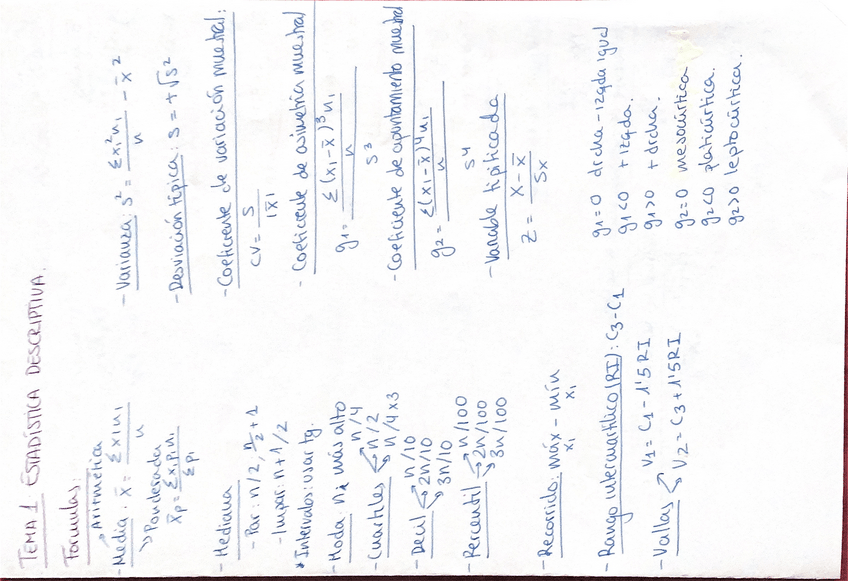 TEMA 1: ESTADÍSTICA DESCRIPTIVA.
Fórmulas:
→ Aritmética
- Media: x̄ = Σxᵢnᵢ / n
↘ Ponderada
x̄p = Σxᵢpᵢnᵢ / Σpᵢ
- Mediana
- Par: n/2, n/2 + 1
- Impar: n+1/2
* Intervalos: usar tg.
- Moda: nᵢ más alto
- Cuartiles n/4
n/2
n/4 x 3
- Decil n/10
2n/10
3n/10
- Percentil n/100
2n/100
3n/100
- Recorrido: máx xᵢ - mín xᵢ
- Rango intercuartílico (RI): C3 - C1
- Vallas V1 = C1 - 1'5 RI
V2 = C3 + 1'5 RI
- Varianza: s² = Σxᵢ²nᵢ / n - x̄²
- Desviación típica: s = +√s²
- Coeficiente de variación muestral:
CV = s / |x̄|
- Coeficiente de asimetría muestral
g1 = Σ(xᵢ-x̄)³nᵢ / n / s³
- Coeficiente de apuntamiento muestral
g2 = Σ(xᵢ-x̄)⁴nᵢ / n / s⁴
- Variable tipificada
Z = x - x̄ / Sx
g1=0 drcha - izqda igual
g1<0 + izqda.
g1>0 + drcha.
g2=0 mesocúrtica
g2<0 platicúrtica.
g2>0 leptocúrtica.